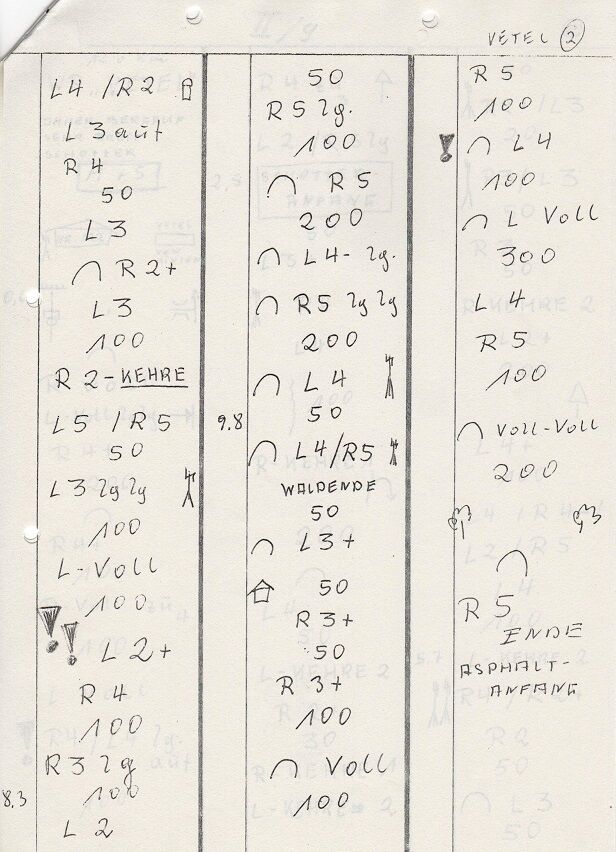 VÉTEL 2
L4 /R2
L3 aut
R4
50
L3
R2+
L3
100
R 2-KEHRE
L5 /R5
50
L3 lg lg
100
L-Voll
100
!! L2+
R4
100
R3 lg
8.3 100
L 2
50
R5 lg.
100
R5
200
L4- lg.
R5 lg lg
200
L4
9.8 50
L4/R5
WALDENDE
50
L3+
50
R3+
50
R3+
100
Voll
100
R5
100
! L4
100
L Voll
300
L4
R5
100
Voll-Voll
200
R5
ENDE
ASPHALT-
ANFANG